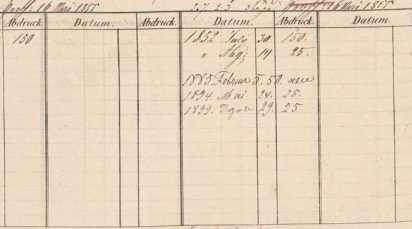 16 Mai 1855 16 Mai 1855
Abdruck. Datum. Abdruck. Datum. Abdruck. Datum.
150 1852 July 30 150.
" Aug. 14 25.
1885 Februar 5. 50.
1894 Mai 24. 25.
1899. 29. 25